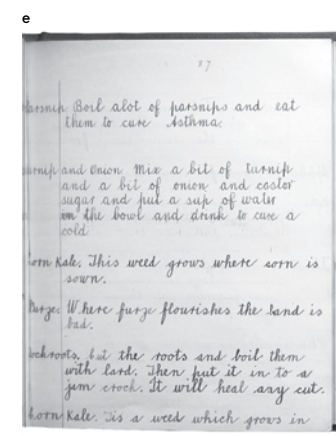 e
87
Parsnip Boil alot of parsnips and eat
them to cure Asthma.
urnip and Onion Mix a bit of turnip
and a bit of onion and castor
sugar and put a sup of water
on the bowl and drink to cure a
cold
Corn Kale. This weed grows where corn is
sown.
Furze. Where furze flourishes the land is
bad.
ockroots. Cut the roots and boil them
with lard. Then put it in to a
jam crock. It will heal any cut.
Corn Kale. Tis a weed which grows in